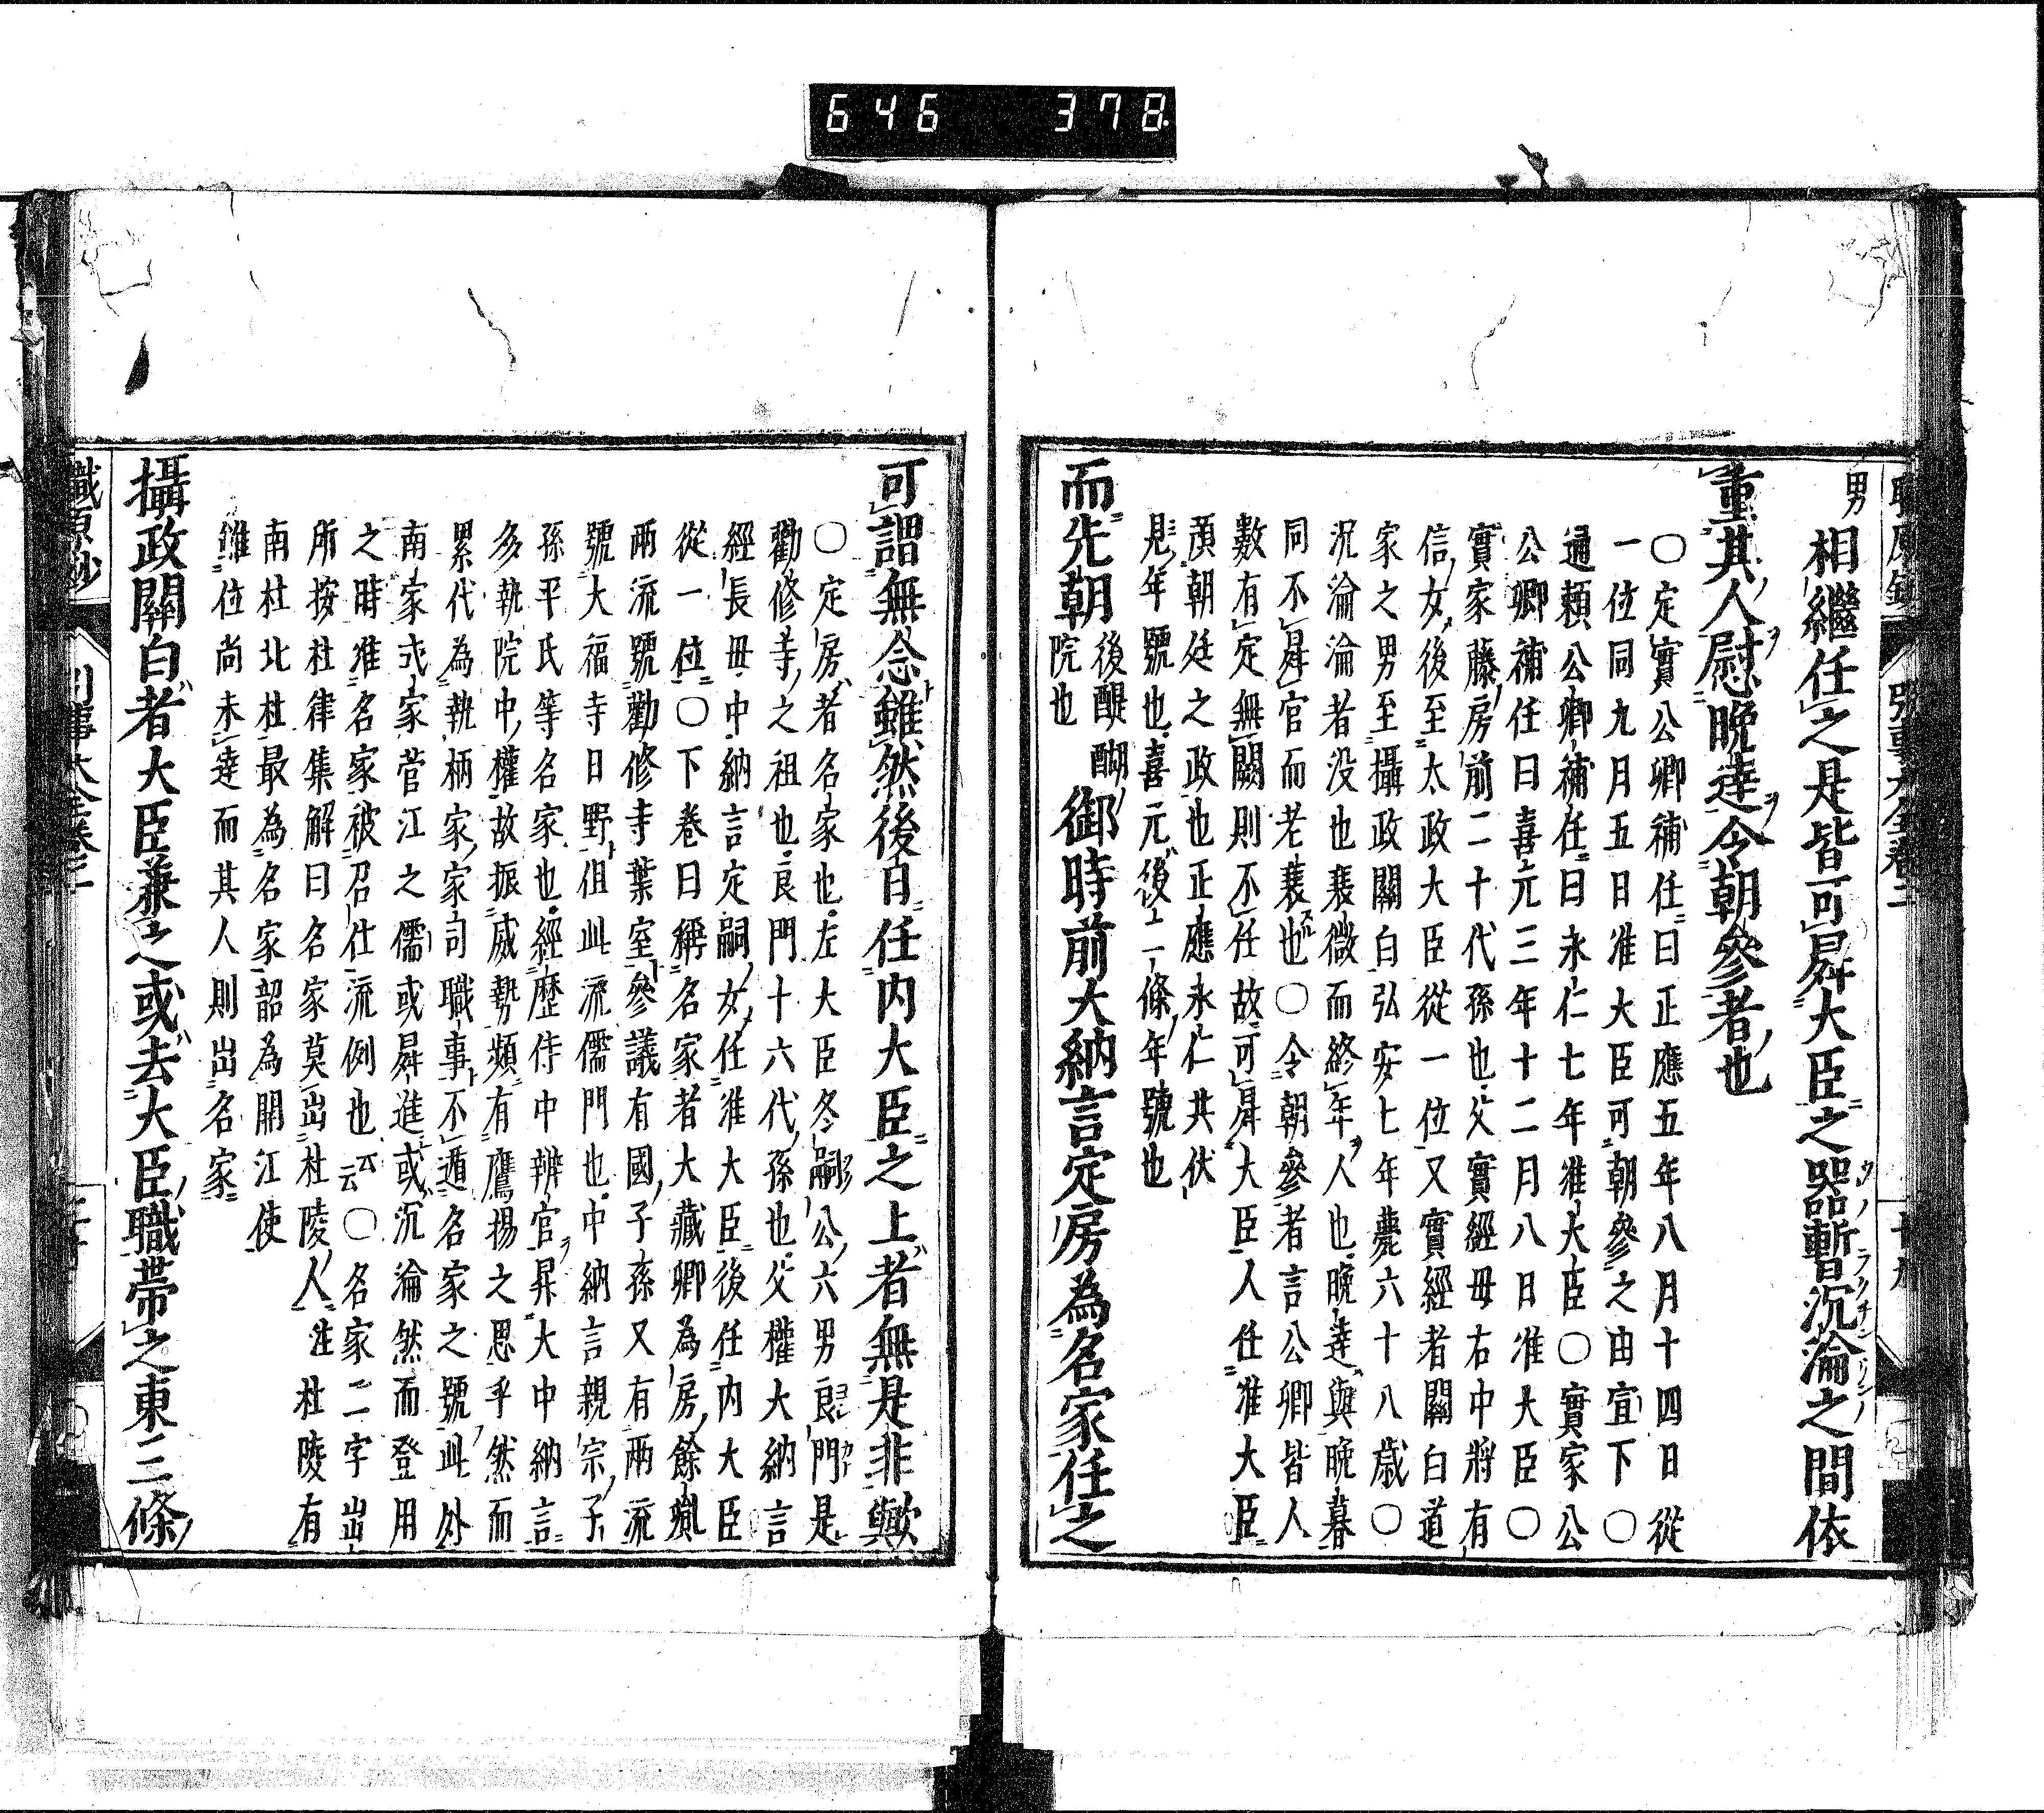 646 378
男
相繼任之是皆可昇大臣之器暫沉淪之間依
重其人慰晩達令朝參者也
〇定實公卿補任曰正應五年八月十四日從
一位同九月五日准大臣可朝參之由宣下〇
通頼公卿補任曰永仁七年准大臣〇實家公
公卿補任曰喜元三年十二月八日准大臣〇
實家藤房前二十代孫也父實經母右中將有
信女後至太政大臣從一位又實經者關白道
家之男至攝政關白弘安七年薨六十八歳〇
沉淪淪者没也衰微而終年人也晩達與晩暮
同不昇官而老衰也〇令朝參者言公卿皆人
數有定無闕則不任故可昇大臣人任准大臣
頂朝廷之政也正應永仁共伏
見年號也喜元後二條年號也
而先朝後醍醐院也御時前大納言定房為名家任之
可謂無念雖然後日任内大臣之上者無是非歟
〇定房者名家也左大臣冬嗣公六男良門是
勸修寺之祖也良門十六代孫也父權大納言
經長母中納言定嗣女任准大臣後任内大臣
從一位〇下卷曰稱名家者大藏卿為房餘胤
兩流號勸修寺葉室參議有國子孫又有兩流
號大福寺日野但此流儒門也中納言親宗子
孫平氏等名家也經歴侍中辨官昇大中納言
多執院中權故振威勢頻有鷹揚之思乎然而
累代為執柄家家司職事不遁名家之號此外
南家式家菅江之儒或昇進或沉淪然而登用
之時准名家被召仕流例也云云〇名家二字出
所按杜律集解曰名家莫出杜陵人注杜陵有
南杜北杜最為名家韶為開江使
雖位尚未達而其人則出名家
攝政關白者大臣兼之或去大臣職帶之東三條
職原抄